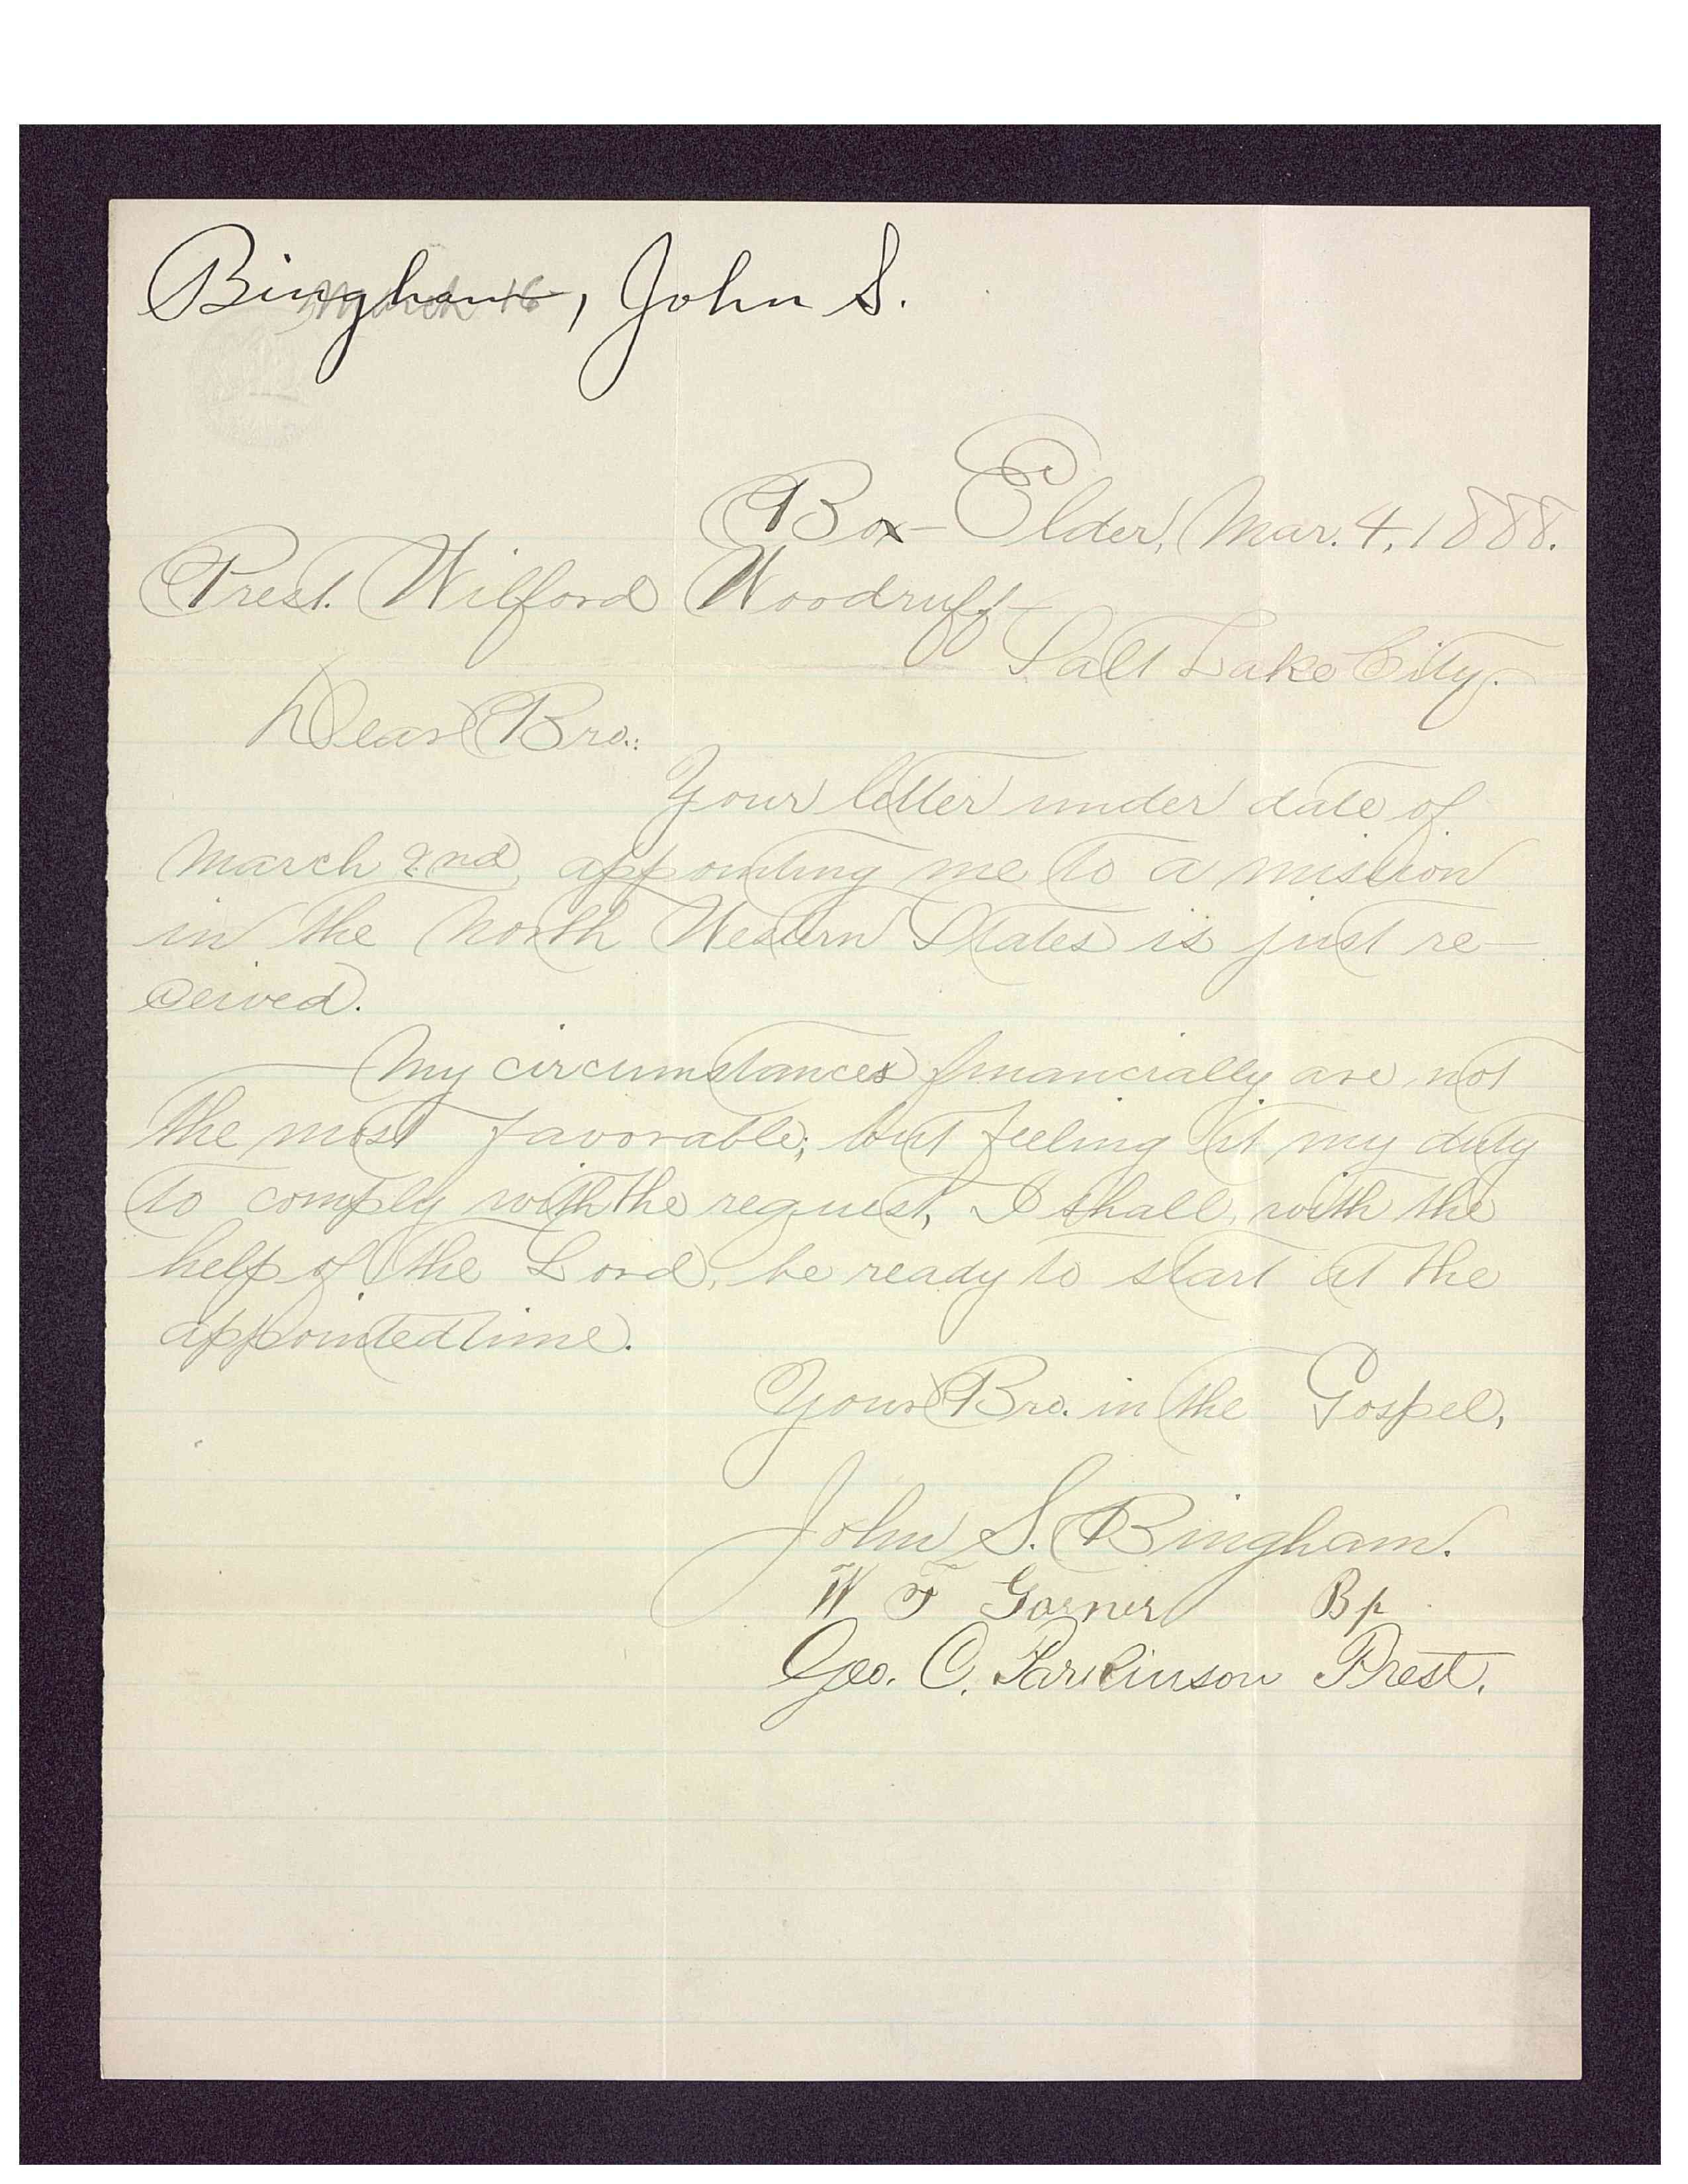 Bingham, John S.
March 16
Box-Elder, Mar. 4, 1888.
Prest. Wilford Woodruff
Salt Lake City.
Dear Bro.:
Your letter under date of
March 2nd, appointing me to a mission
in the North Western States is just re-
ceived.
My circumstances financially are not
the most favorable; but feeling it my duty
to comply with the request, I shall, with the
help of the Lord, be ready to start at the
appointed time.
Your Bro. in the Gospel,
John S. Bingham.
W F Garner Bp
Geo. C. Parkinson Prest.